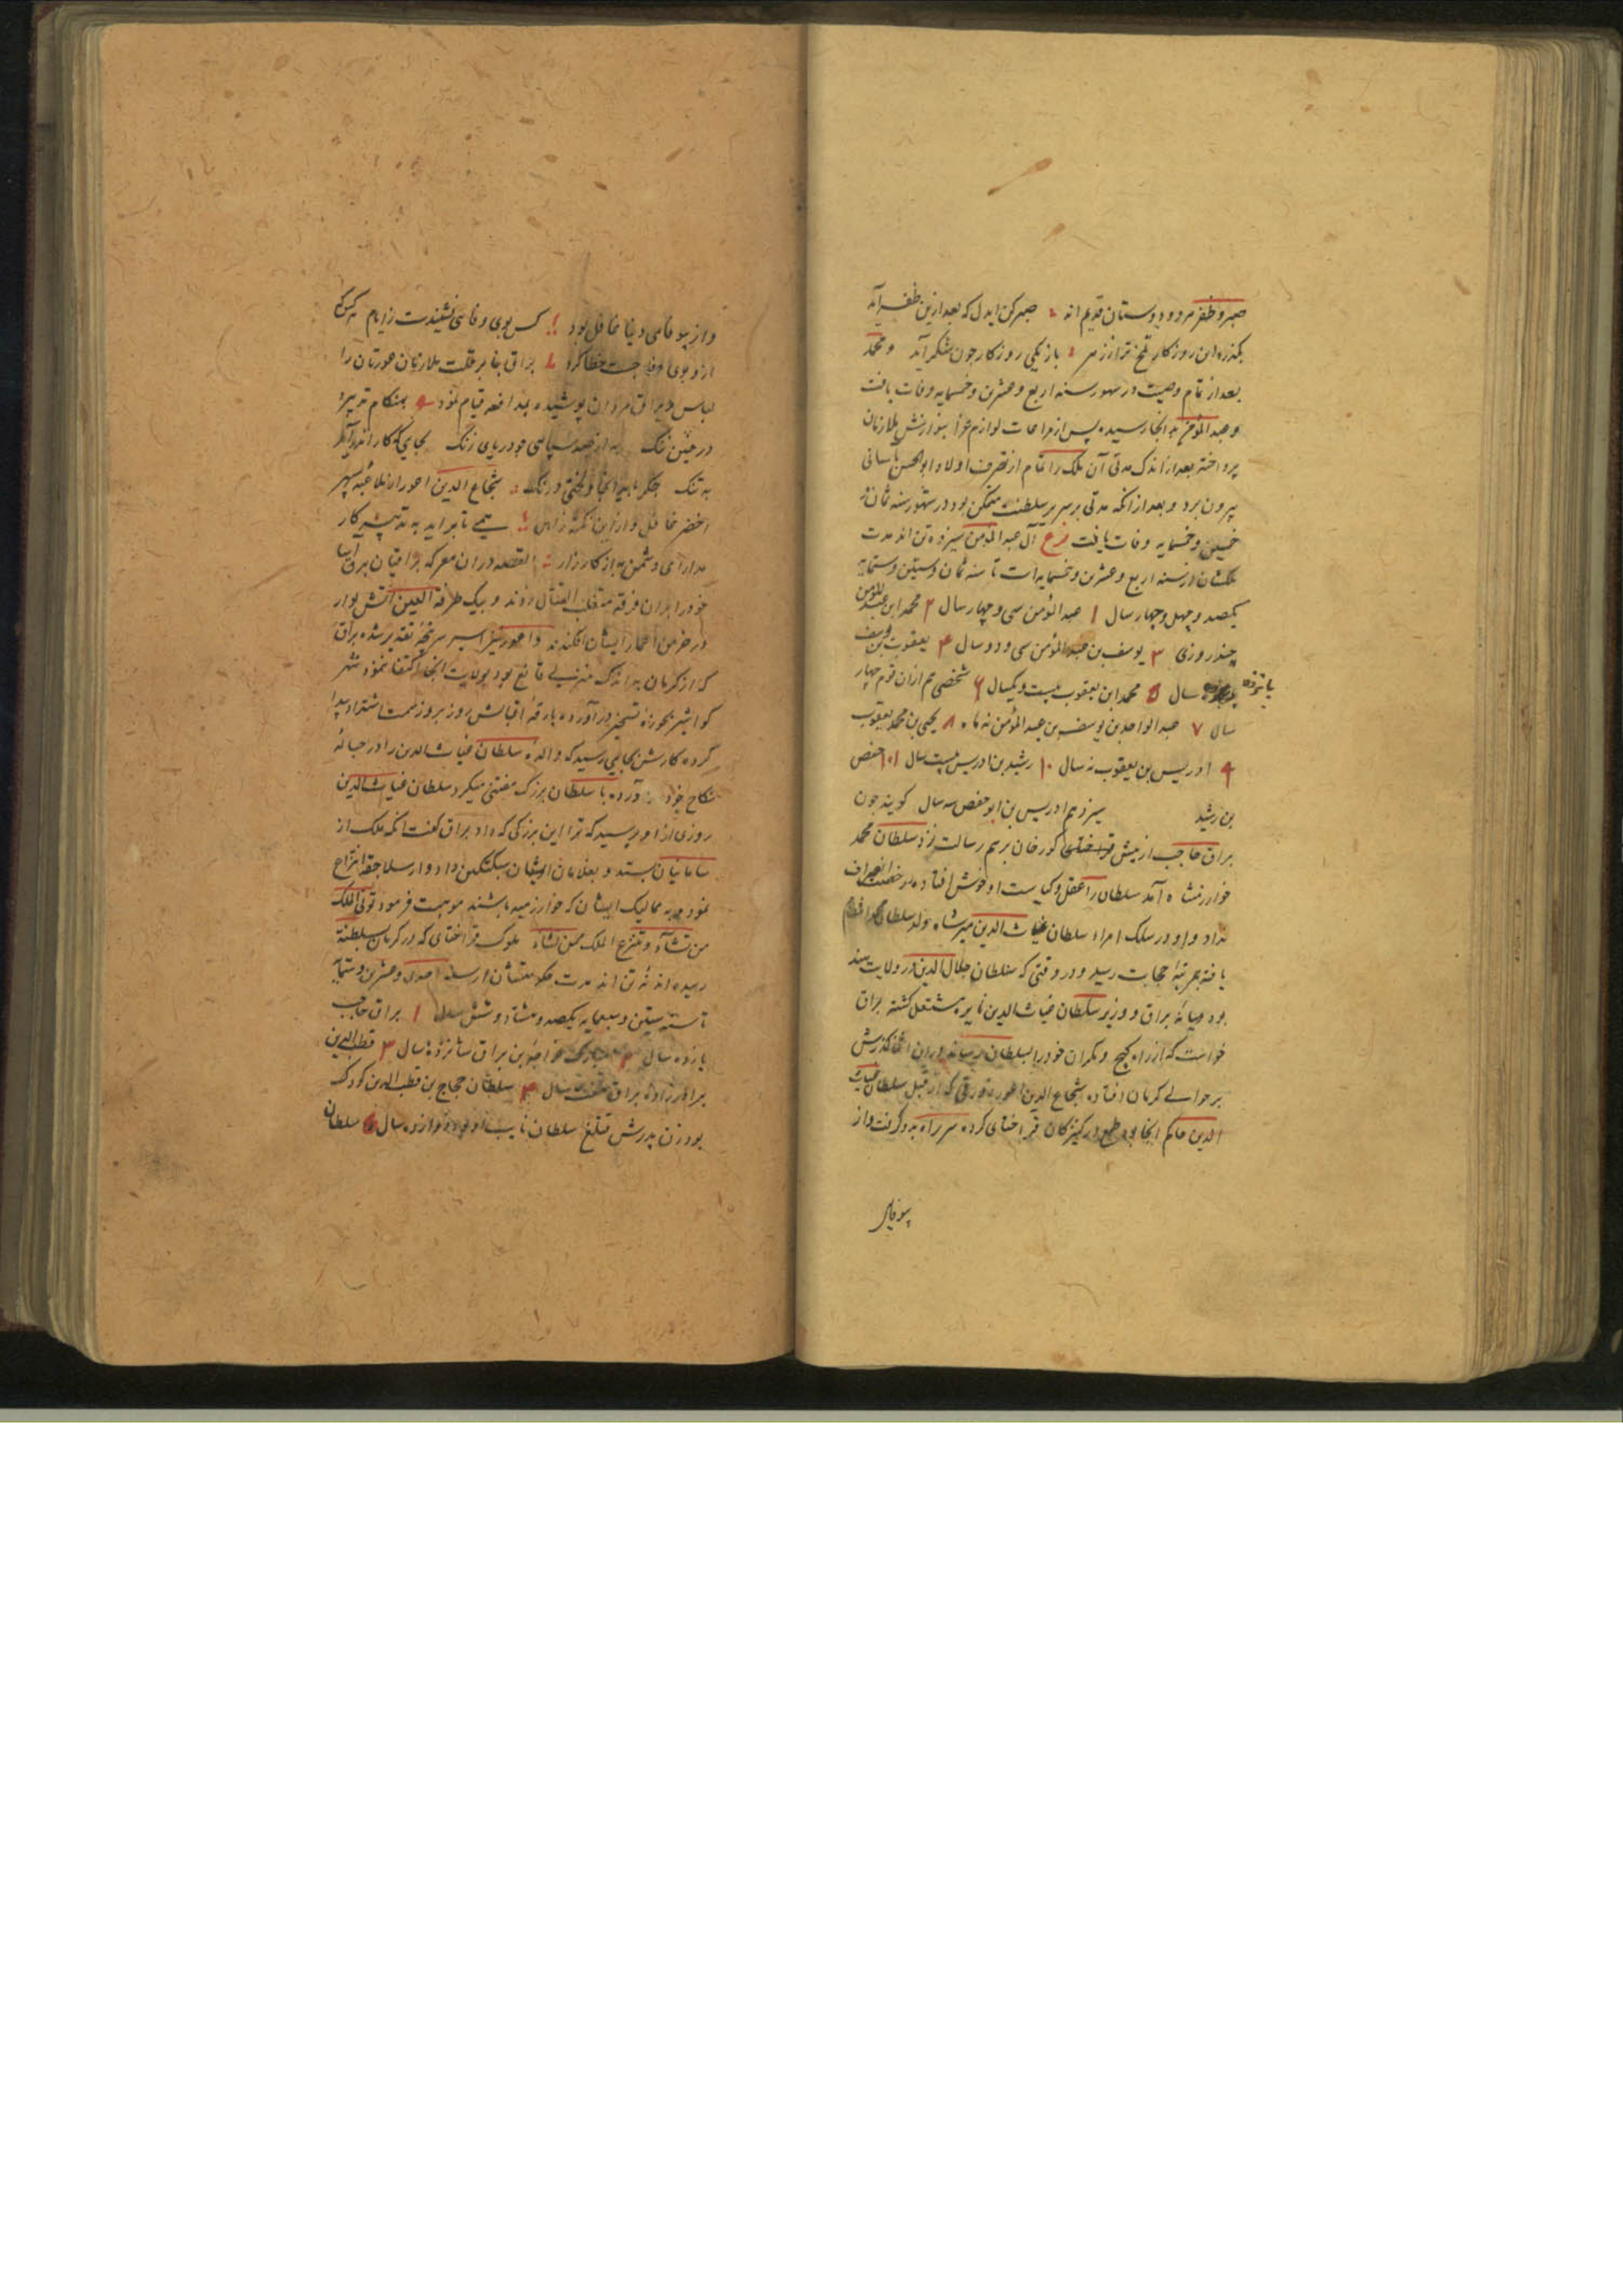 صبر و ظفر هر دو دوستان قدیم اند صبر کن ایدل که بعد ازین ظفر آید
بگذرد این روزکار تلخ تر از زهر بار یکی روزکار چون شکر آید و محمد
بعد از تمام وصیت در شهور سنه اربع و عشرین و خمسمایه وفات یافت
و عبد المؤمن بدانجا رسیده پس از مراعات لوازم عزا بنوازش ملازمان
پرداخته بعد از اندک مدتی آن ملک را تمام از تصرف اولاد ابو الحسن
بیرون برد و بعد از انکه مدتی بر سریر سلطنت متمکن بود در شهور سنه ثمان و
خمسین و خمسمایه وفات یافت فرع آل عبد المؤمن سیزده تن اند مدت
ملکشان از سنه اربع و عشرین و خمسمایه است تا سنه ثمان و ستین و ستمایه
یکصد و چهل و چهار سال ۱ عبد المؤمن سی و چهار سال ۲ محمد ابن عبد المؤمن
چند روزی ۳ یوسف بن عبد المؤمن سی و دو سال ۴ یعقوب بن یوسف
پانزده سال ۵ محمد ابن یعقوب بیست و یکسال ۶ شخصی هم ازان قوم چهار
سال ۷ عبد الواحد بن یوسف بن عبد المؤمن نه ماه ۸ یحیی بن محمد یعقوب
۹ ادریس بن یعقوب نه سال ۱۰ رشید بن ادریس بیست سال ۱۱ حفص
بن رشید سیزدهم ادریس بن ابو حفص سه سال کویند چون
براق حاجب از پیش قراختای کورخان برسم رسالت نزد سلطان محمد
خوارزمشاه آمد سلطان را عقل و کیاست او خوش افتاده رخصت انصراف
نداد و او در سلک امراء سلطان غیاث الدین میرشاه ولد سلطان محمد انتظام
یافته بمرتبه حجابت رسید و در وقتی که سلطان جلال الدین در ولایت هند
بود میانه براق و وزیر سلطان غیاث الدین نایره مشتعل کشته براق
خواست که از راه کیچ و مکران خود را بسلطان رساند دران اثنا کذرش
بر حوالی کرمان افتاده شجاع الدین که از قبل سلطان غیاث
الدین حاکم انجا بود طمع در کنیزکان قراختای کرده سر راه برو کرفت و از
بیوفای
و از بیوفای دنیا غافل بود کس بوی وفا نشنیدست ز ایام هر کس که
ازو بوی وفا جست خطا کرد براق بنا بر قلت ملازمان عورتان را
لباس و یراق مردان پوشیده بمدافعه قیام نمود بهنکام تدبیر
در عین جنک به از صد سپاهی بود رای زنک بجای که کار اندر آید
به تنک شجاع الدین از ملاعبه سپهر
اخضر غافل و ازین نکته ذاهل همی تا براید به تدبیر کار
مدارای دشمن به از کارزار القصه دران معرکه براقیان
خود را بران فرقه زدند و بیک طرفة العین اتش بوار
در خرمن اعمار ایشان افکندند اسیر سرپنجه تقدیر شده براق
که از کرمان به اندک منزلی قانع بود بولایت انجا اکتفا ننموده شهر
کواشیر بحوزه تسخیر در آورده بارقه اقبالش روز بروز سمت اشتداد پیدا
کرده کارش بجایی رسید که والده سلطان غیاث الدین را در حباله
نکاح خود در آورده با سلطان بزرک منشی میکرد سلطان غیاث الدین
روزی از او پرسید که ترا این بزرکی که داد براق کفت انکه ملک از
سامانیان ستد و بغلامان ایشان سبکتکین داد و از سلاجقه انتزاع
نموده به ممالیک ایشان که خوارزمیه باشند موهبت فرمود تؤتی الملک
من تشاء و تنزع الملک ممن تشاء ملوک قراختای که در کرمان بسلطنة
رسیده اند نه تن اند مدت حکومتشان از سنه احدی و عشرین و ستمایه
تا سنه ستین و سبعمایه یکصد و هشتاد و شش سال ۱ براق حاجب
یازده سال ۲ مبارک خواجه بن براق شانزده سال ۳ قطب الدین
برادرزاده براق هفت سال ۴ سلطان حجاج بن قطب الدین کودک
بود زن پدرش قتلغ سلطان نایب او بود دوازده سال ۵ سلطان